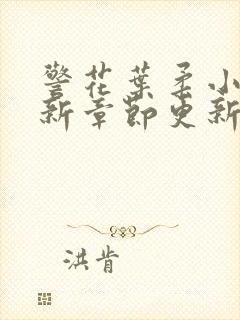 警花葉柔小
新章節更新
洪肯